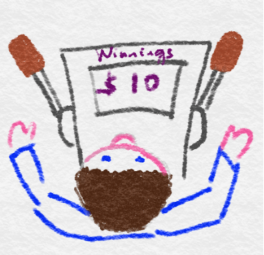 Winnings
$ 10